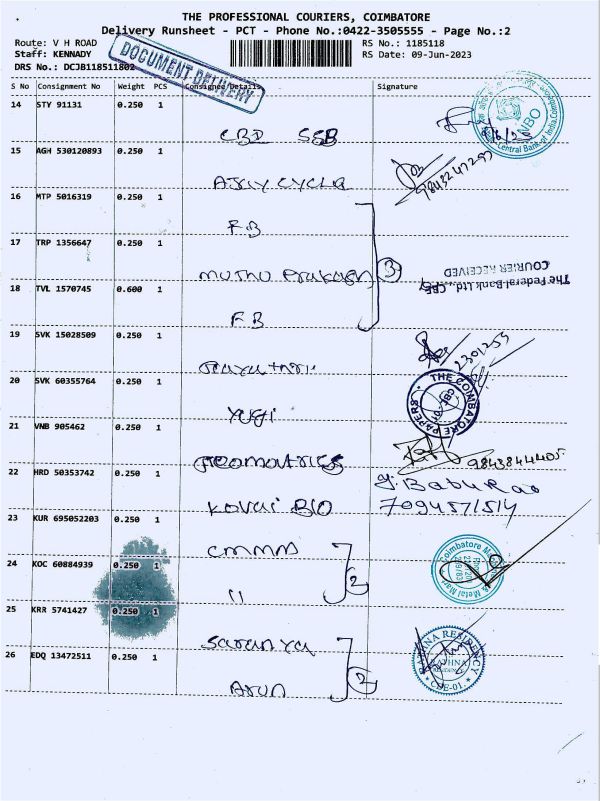 THE PROFESSIONAL COURIERS, COIMBATORE
Delivery Runsheet - PCT - Phone No.:0422-3505555 - Page No.:2
Route: V H ROAD RS No.: 1185118
Staff: KENNADY RS Date: 09-Jun-2023
DRS No.: DCJB118511802
DOCUMENT DELIVERY
S No Consignment No Weight PCS Consignee Details Signature
14 STY 91131 0.250 1
CBI SSB
Central Bank of India, Coimbatore
15 AGH 530120893 0.250 1
AJAY CYCLE
16 MTP 5016319 0.250 1
F B
17 TRP 1356647 0.250 1
muthu Prakash 3
The Federal Bank Ltd., CBE
COURIER RECEIVED
18 TVL 1570745 0.600 1
F B
19 SVK 15028509 0.250 1
2301253
20 SVK 60355764 0.250 1
Yugi
THE COIMBATORE PAPERS
21 VNB 905462 0.250 1
Geomatrics
9843844405
22 HRD 50353742 0.250 1
Kovai BIO
Y. Babu Rao
7094571514
23 KUR 695052203 0.250 1
CMMM
24 KOC 60884939 0.250 1 2
"
25 KRR 5741427 0.250 1
Saranya
RATHNA RESIDENCY
RATHNA
CBE-01.
26 EDQ 13472511 0.250 1 2
Arun